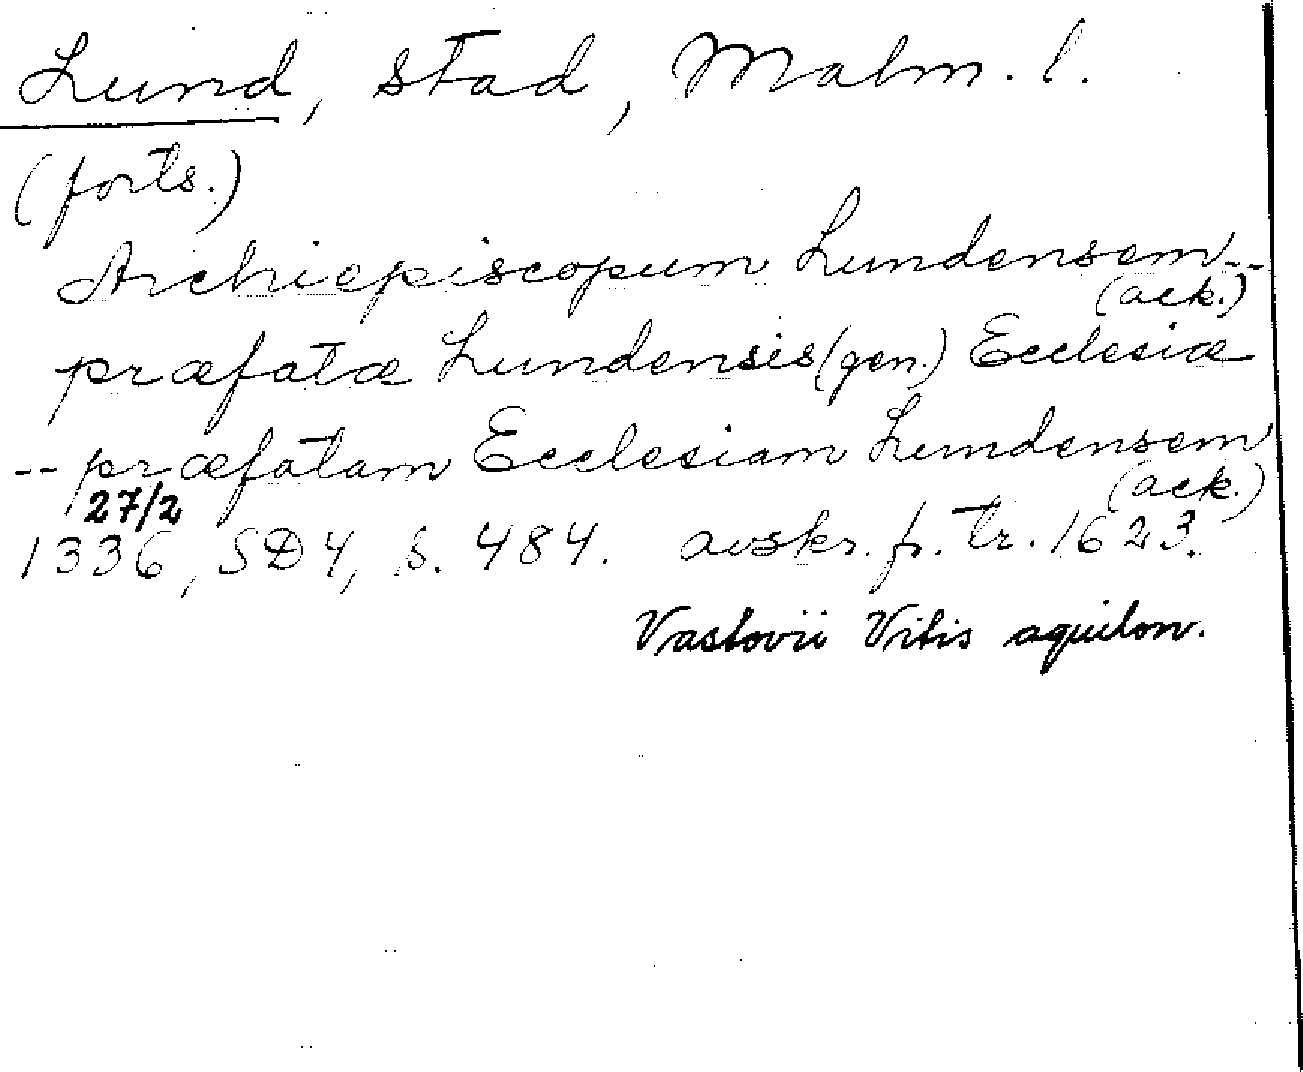 Lund, stad, Malm. l.
(forts.)
Archiepiscopum Lundensem --
(ack.)
præfatæ Lundensis (gen.) Ecclesiæ
-- præfatam Ecclesiam Lundensem
(ack.)
27/2
1336, SD4, s. 484. avskr. fr. tr. 1623.
Vastovii Vitis aquilon.